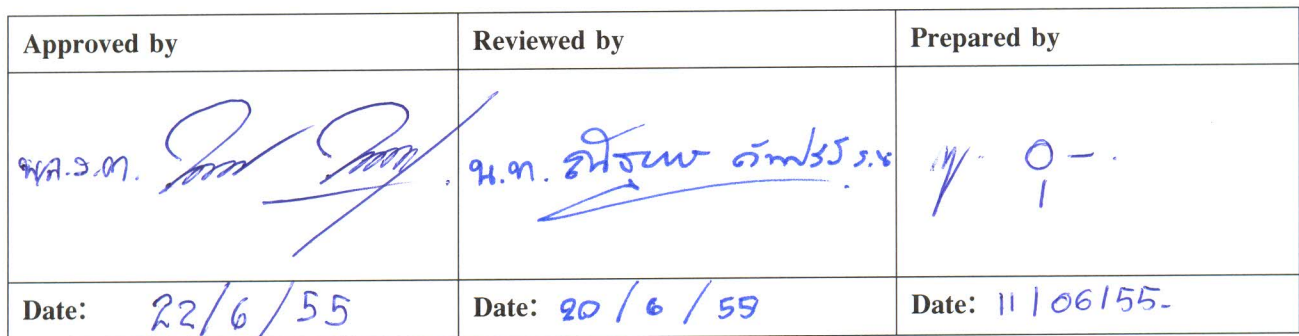 Approved by
Reviewed by
Prepared by
พล.ร.ต.
น.ท.
ร.น
Date: 22/6/55
Date: 20/6/55
Date: 11/06/55-